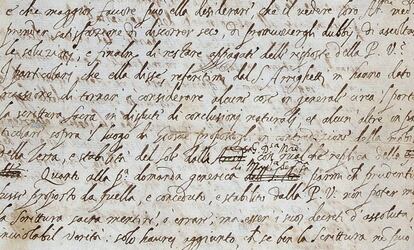 e che maggior favore può ella desiderare, che il vedere loro
prender satisfazione di discorrer seco, di promuovergli dubbi, di ascoltar
le soluzioni, e finalm. di restare appagati delle risposte della P. V.
I particolari, che ella disse referitimi dal S. Arrighetti m'hanno dato
occasione di tornar' a considerare alcune cose in generale circa 'l portar
la scrittura sacra in dispute di conclusioni naturali, et alcun' altre in par
ticolari sopra il luogo di Giosue propostoli, in contradizione della
della Terra, e stabilità del sole dalla con qual replica della
Quanto alla pa. domanda generica parmi che prudenti
fusse proposto da quella, e conceduto, e stabilito dalla P. V. non poter ma
la scrittura sacra mentire, o errare, ma esser i suoi decreti d'assoluta
inviolabil verità: solo haurei aggiunto, che se ben la scrittura non può